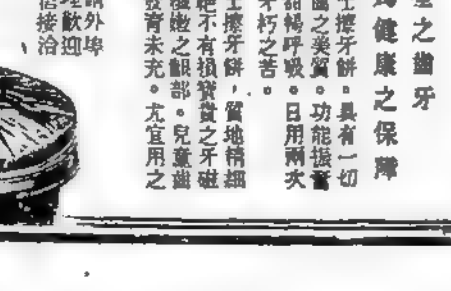 堅之齒牙
爲健康之保障
士擦牙餅。具有一切
齒之美質。功能振奮
甜暢呼吸。日用兩次
牙朽之苦。
士擦牙餅，質地精細
絕不有損寶貴之牙磁
極嫩之齦部。兒童齒
發育未充。尤宜用之
請外埠
理歡迎
信接洽